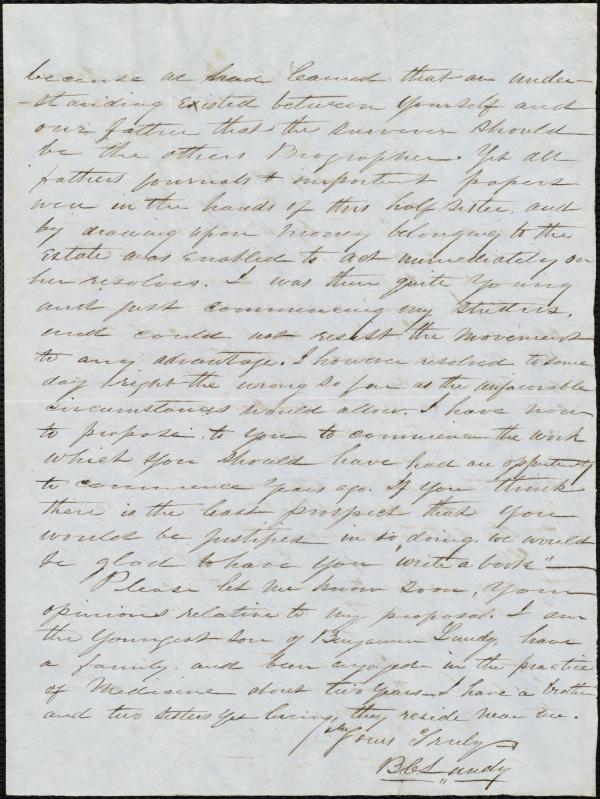 because we had learned that an under-
-standing Existed between Yourself and
our father that the surviver should
be the others Biographer. Yet all
fathers journals & important papers
were in the hands of this half sister, and
by drawing upon money belonging to the
Estate was Enabled to act immediately on
her resolves. I was then quite Young
and just commencing my studies,
and could not resist the movement
to any advantage. I however resolved to some
day right the wrong so far as the unfavorable
circumstances would allow. I have now
to propose to you to commence the work
which you should have had an opportunity
to commence Years ago. If You think
there is the least prospect that You
would be justified in so doing, we would
be glad to have you "write a book"—
Please let me know soon, Your
opinions relative to my proposal. I am
the Youngest son of Benjamin Lundy, have
a family, and been engaged in the practice
of Medicine about two Years I have a brother
and two sisters yet living, they reside near me.
Yours Truly
B C Lundy